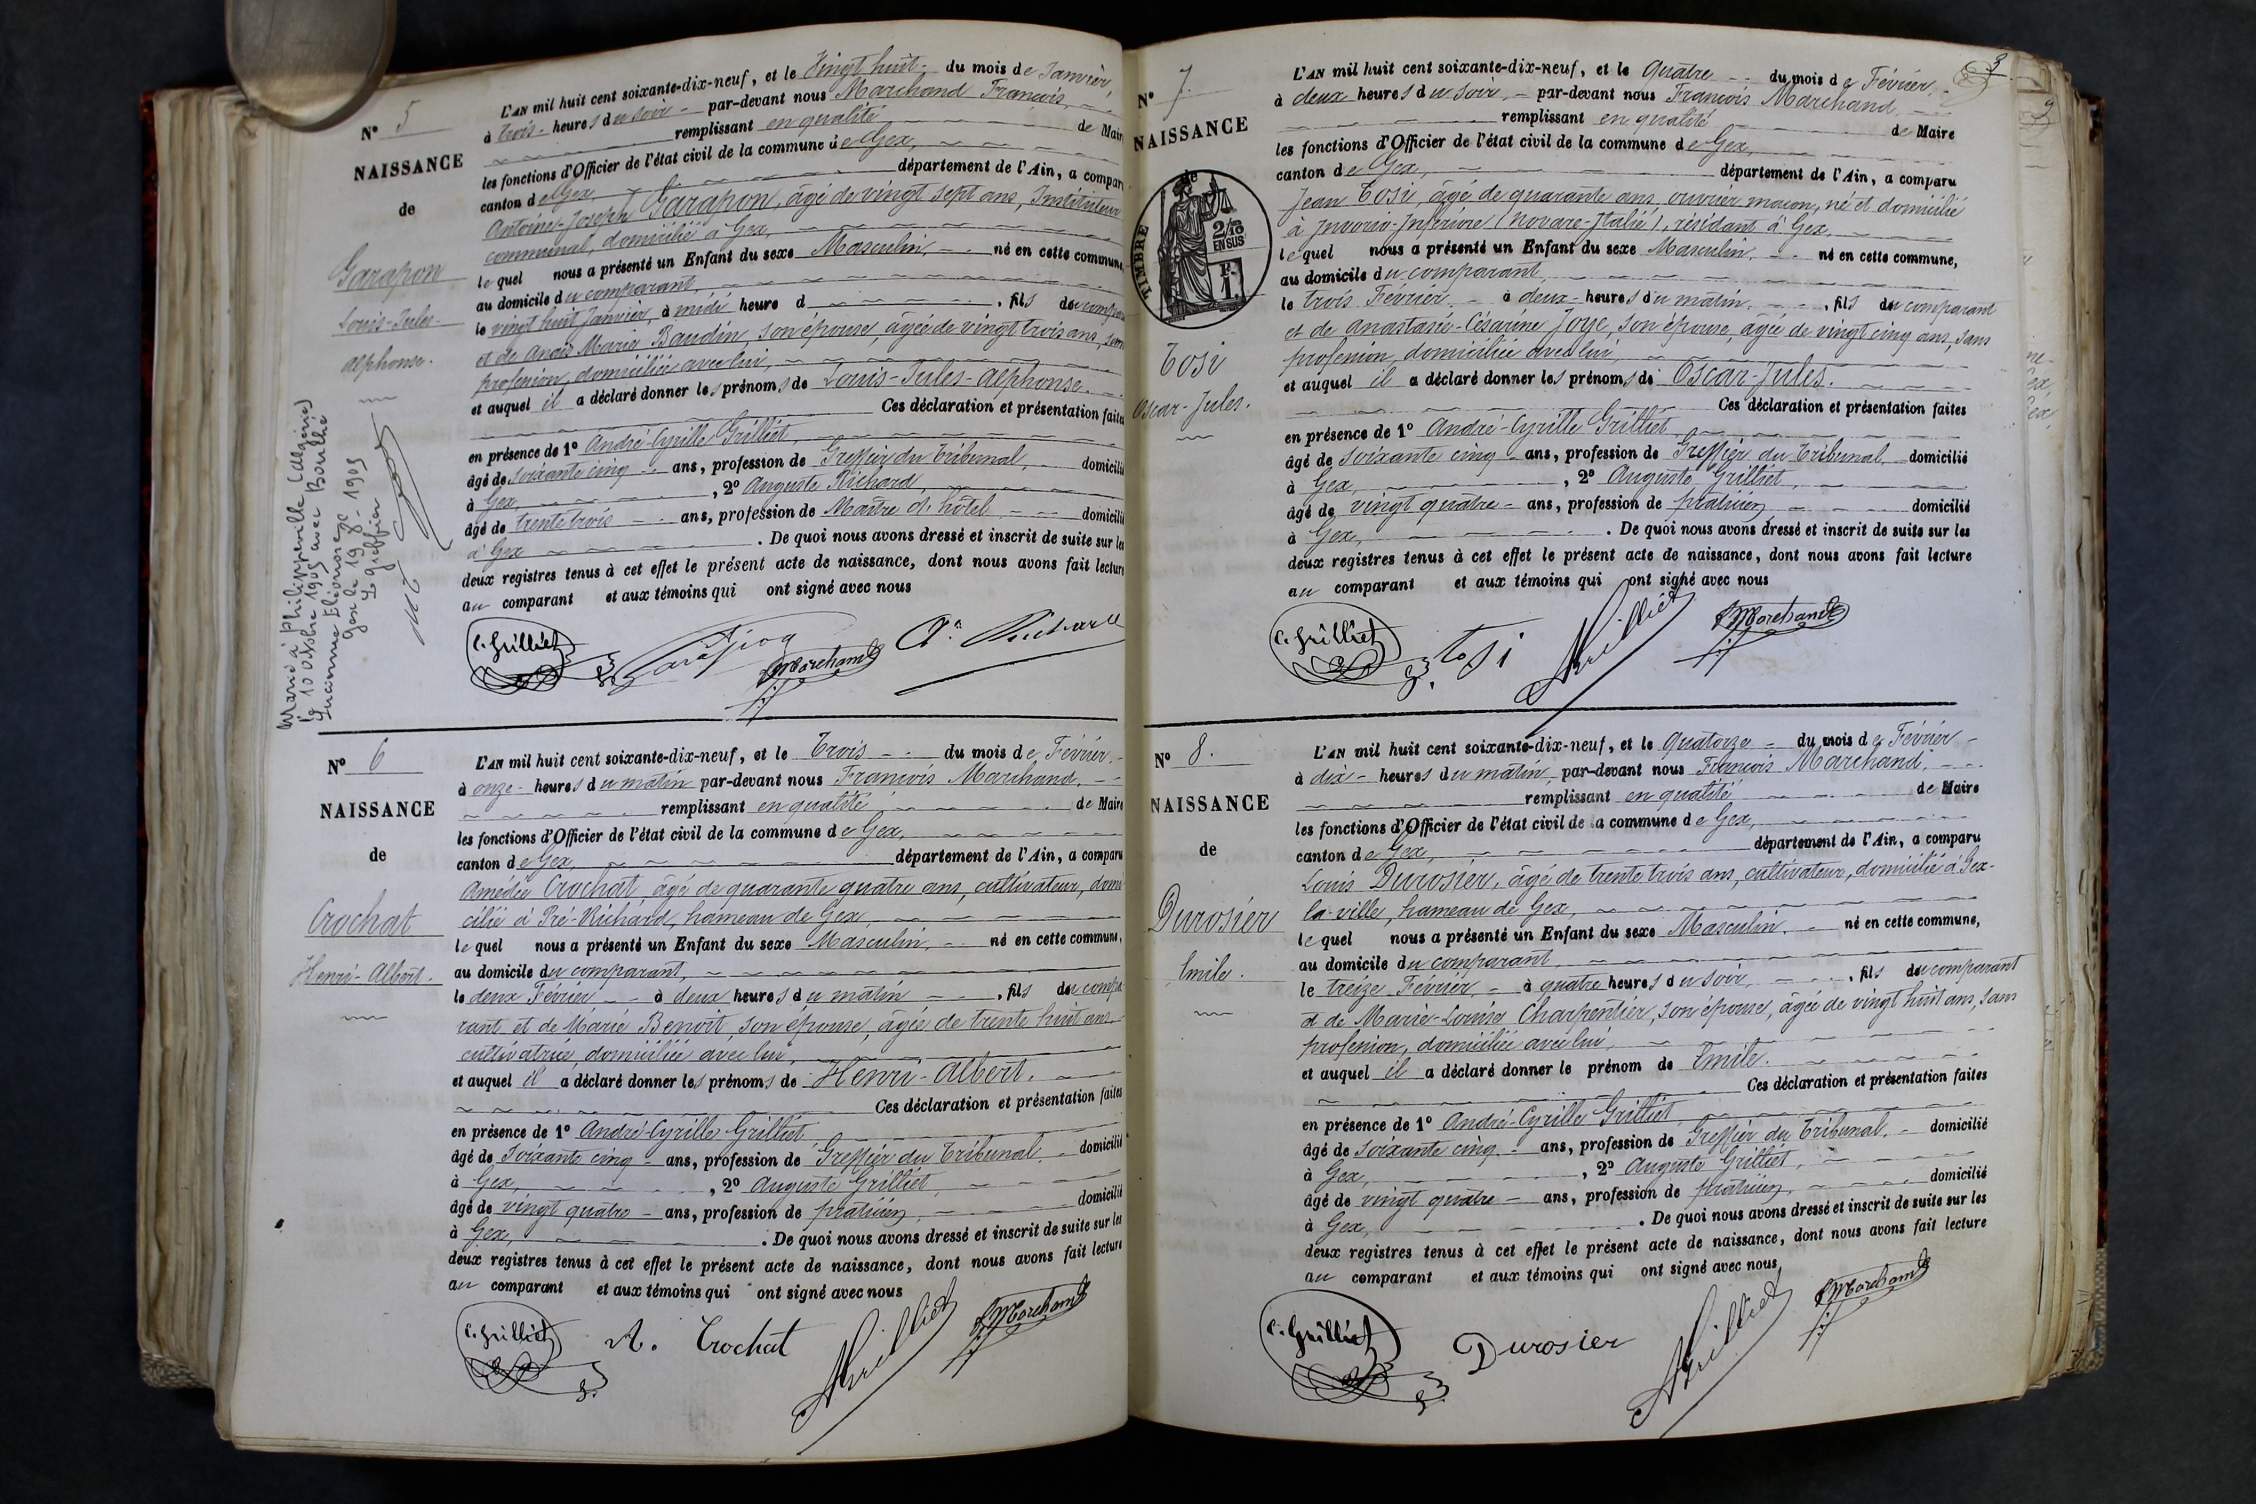 N° 5
NAISSANCE
de
Garapon
Louis-Jules-
Alphonse.
Marié à Philippeville (Algérie)
le 10 Octobre 1905 avec Bouthié
Eléonore
Gex le 19 8re 1905
Le greffier
L'AN mil huit cent soixante-dix-neuf, et le Vingt huit du mois de Janvier,
à trois heures du soir par-devant nous Marchand François,
remplissant en qualité de Maire
les fonctions d'Officier de l'état civil de la commune de Gex,
canton de Gex, département de l'Ain, a comparu
Antoine-Joseph Garapon, âgé de vingt sept ans, Instituteur
communal, domicilié à Gex,
lequel nous a présenté un Enfant du sexe Masculin, né en cette commune,
au domicile du comparant,
le vingt huit Janvier, à midi heure d , fils du comparant
et de Anaïs Marie Baudin, son épouse, âgée de vingt trois ans, sans
profession, domiciliée avec lui,
et auquel il a déclaré donner les prénoms de Louis-Jules-Alphonse.
Ces déclaration et présentation faites
en présence de 1° André-Cyrille Grilliet,
âgé de soixante cinq ans, profession de Greffier du Tribunal, domicilié
à Gex , 2° Auguste Richard,
âgé de trente trois ans, profession de Maître d'hôtel domicilié
à Gex . De quoi nous avons dressé et inscrit de suite sur les
deux registres tenus à cet effet le présent acte de naissance, dont nous avons fait lecture
au comparant et aux témoins qui ont signé avec nous
C. Grilliet Garapon Marchand Ate Richard
N° 6
NAISSANCE
de
Crochat
Henri-Albert.
L'AN mil huit cent soixante-dix-neuf, et le Trois du mois de Février
à onze heures du matin par-devant nous François Marchand,
remplissant en qualité de Maire
les fonctions d'Officier de l'état civil de la commune de Gex,
canton de Gex, département de l'Ain, a comparu
Amédée Crochat, âgé de quarante quatre ans, cultivateur, domi
cilié à Pré-Richard, hameau de Gex,
lequel nous a présenté un Enfant du sexe Masculin, né en cette commune,
au domicile du comparant,
le deux Février à deux heures du matin , fils du compa
rant et de Marie Benoit, son épouse, âgée de trente huit ans,
cultivatrice, domiciliée avec lui,
et auquel il a déclaré donner les prénoms de Henri-Albert.
Ces déclaration et présentation faites
en présence de 1° André-Cyrille Grilliet
âgé de Soixante cinq ans, profession de Greffier du Tribunal, domicilié
à Gex, , 2° Auguste Grilliet,
âgé de vingt quatre ans, profession de praticien, domicilié
à Gex, . De quoi nous avons dressé et inscrit de suite sur les
deux registres tenus à cet effet le présent acte de naissance, dont nous avons fait lecture
au comparant et aux témoins qui ont signé avec nous
C. Grilliet A. Crochat AGrilliet Marchand
3
N° 7.
NAISSANCE
de
TIMBRE
2/10
EN SUS
F.
1
Tosi
Oscar-Jules.
L'AN mil huit cent soixante-dix-neuf, et le Quatre du mois de Février,
à deux heures du soir, par-devant nous François Marchand,
remplissant en qualité de Maire
les fonctions d'Officier de l'état civil de la commune de Gex,
canton de Gex, département de l'Ain, a comparu
Jean Tosi, âgé de quarante ans, ouvrier maçon, né et domicilié
à Invorio-Inférieure (Novare-Italie), résidant à Gex,
lequel nous a présenté un Enfant du sexe Masculin, né en cette commune,
au domicile du comparant,
le trois Février, à deux heures du matin , fils du comparant
et de Anastasie-Césarine Joye, son épouse, âgée de vingt cinq ans, sans
profession, domiciliée avec lui,
et auquel il a déclaré donner les prénoms de Oscar-Jules.
Ces déclaration et présentation faites
en présence de 1° André-Cyrille Grilliet,
âgé de soixante cinq ans, profession de Greffier du Tribunal, domicilié
à Gex, , 2° Auguste Grilliet,
âgé de vingt quatre ans, profession de praticien, domicilié
à Gex, . De quoi nous avons dressé et inscrit de suite sur les
deux registres tenus à cet effet le présent acte de naissance, dont nous avons fait lecture
au comparant et aux témoins qui ont signé avec nous
C. Grilliet Tosi AGrilliet Marchand
N° 8.
NAISSANCE
de
Durosier
Emile.
L'AN mil huit cent soixante-dix-neuf, et le Quatorze du mois de Février
à dix heures du matin, par-devant nous François Marchand,
remplissant en qualité de Maire
les fonctions d'Officier de l'état civil de la commune de Gex,
canton de Gex, département de l'Ain, a comparu
Louis Durosier, âgé de trente trois ans, cultivateur, domicilié à Gex-
la-ville, hameau de Gex,
lequel nous a présenté un Enfant du sexe Masculin, né en cette commune,
au domicile du comparant,
le treize Février, à quatre heures du soir, , fils du comparant
et de Marie-Louise Charpentier, son épouse, âgée de vingt huit ans, sans
profession, domiciliée avec lui,
et auquel il a déclaré donner le prénom de Emile.
Ces déclaration et présentation faites
en présence de 1° André-Cyrille Grilliet,
âgé de soixante cinq ans, profession de Greffier du Tribunal, domicilié
à Gex, , 2° Auguste Grilliet,
âgé de vingt quatre ans, profession de praticien, domicilié
à Gex, . De quoi nous avons dressé et inscrit de suite sur les
deux registres tenus à cet effet le présent acte de naissance, dont nous avons fait lecture
au comparant et aux témoins qui ont signé avec nous
C. Grilliet Durosier AGrilliet Marchand